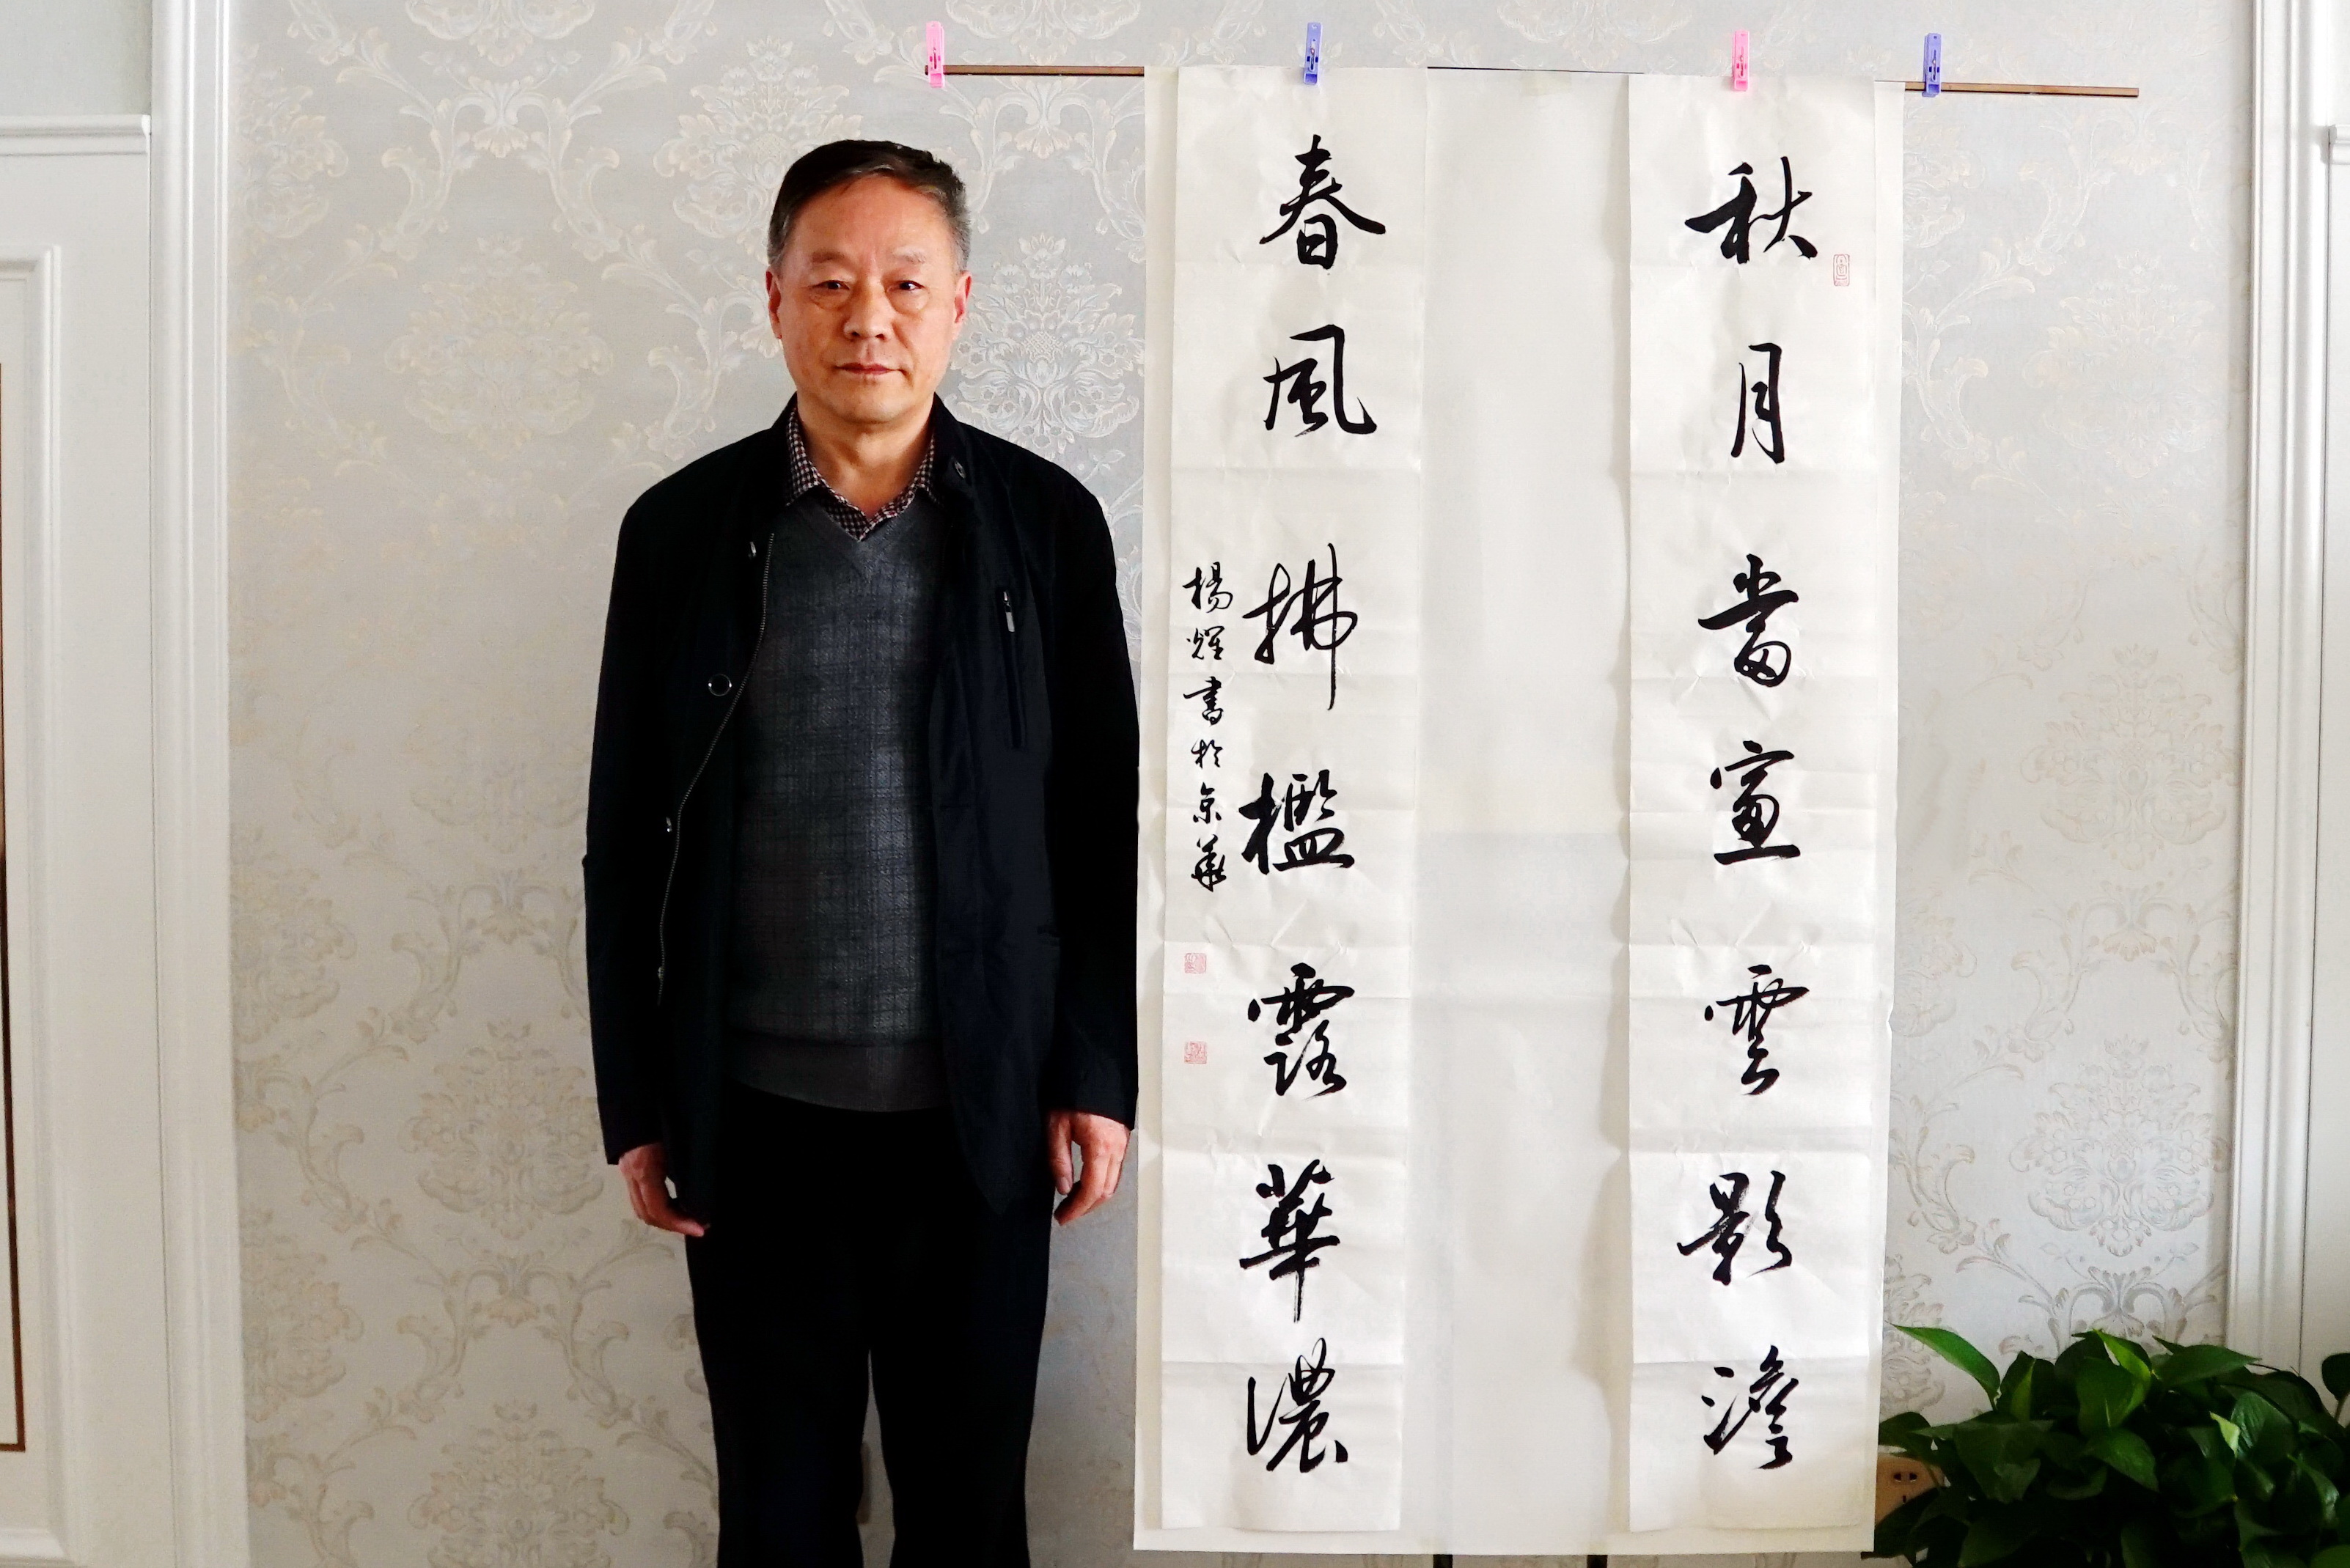 秋月當窗雲影澹
春風拂檻露華濃
楊輝書於京華